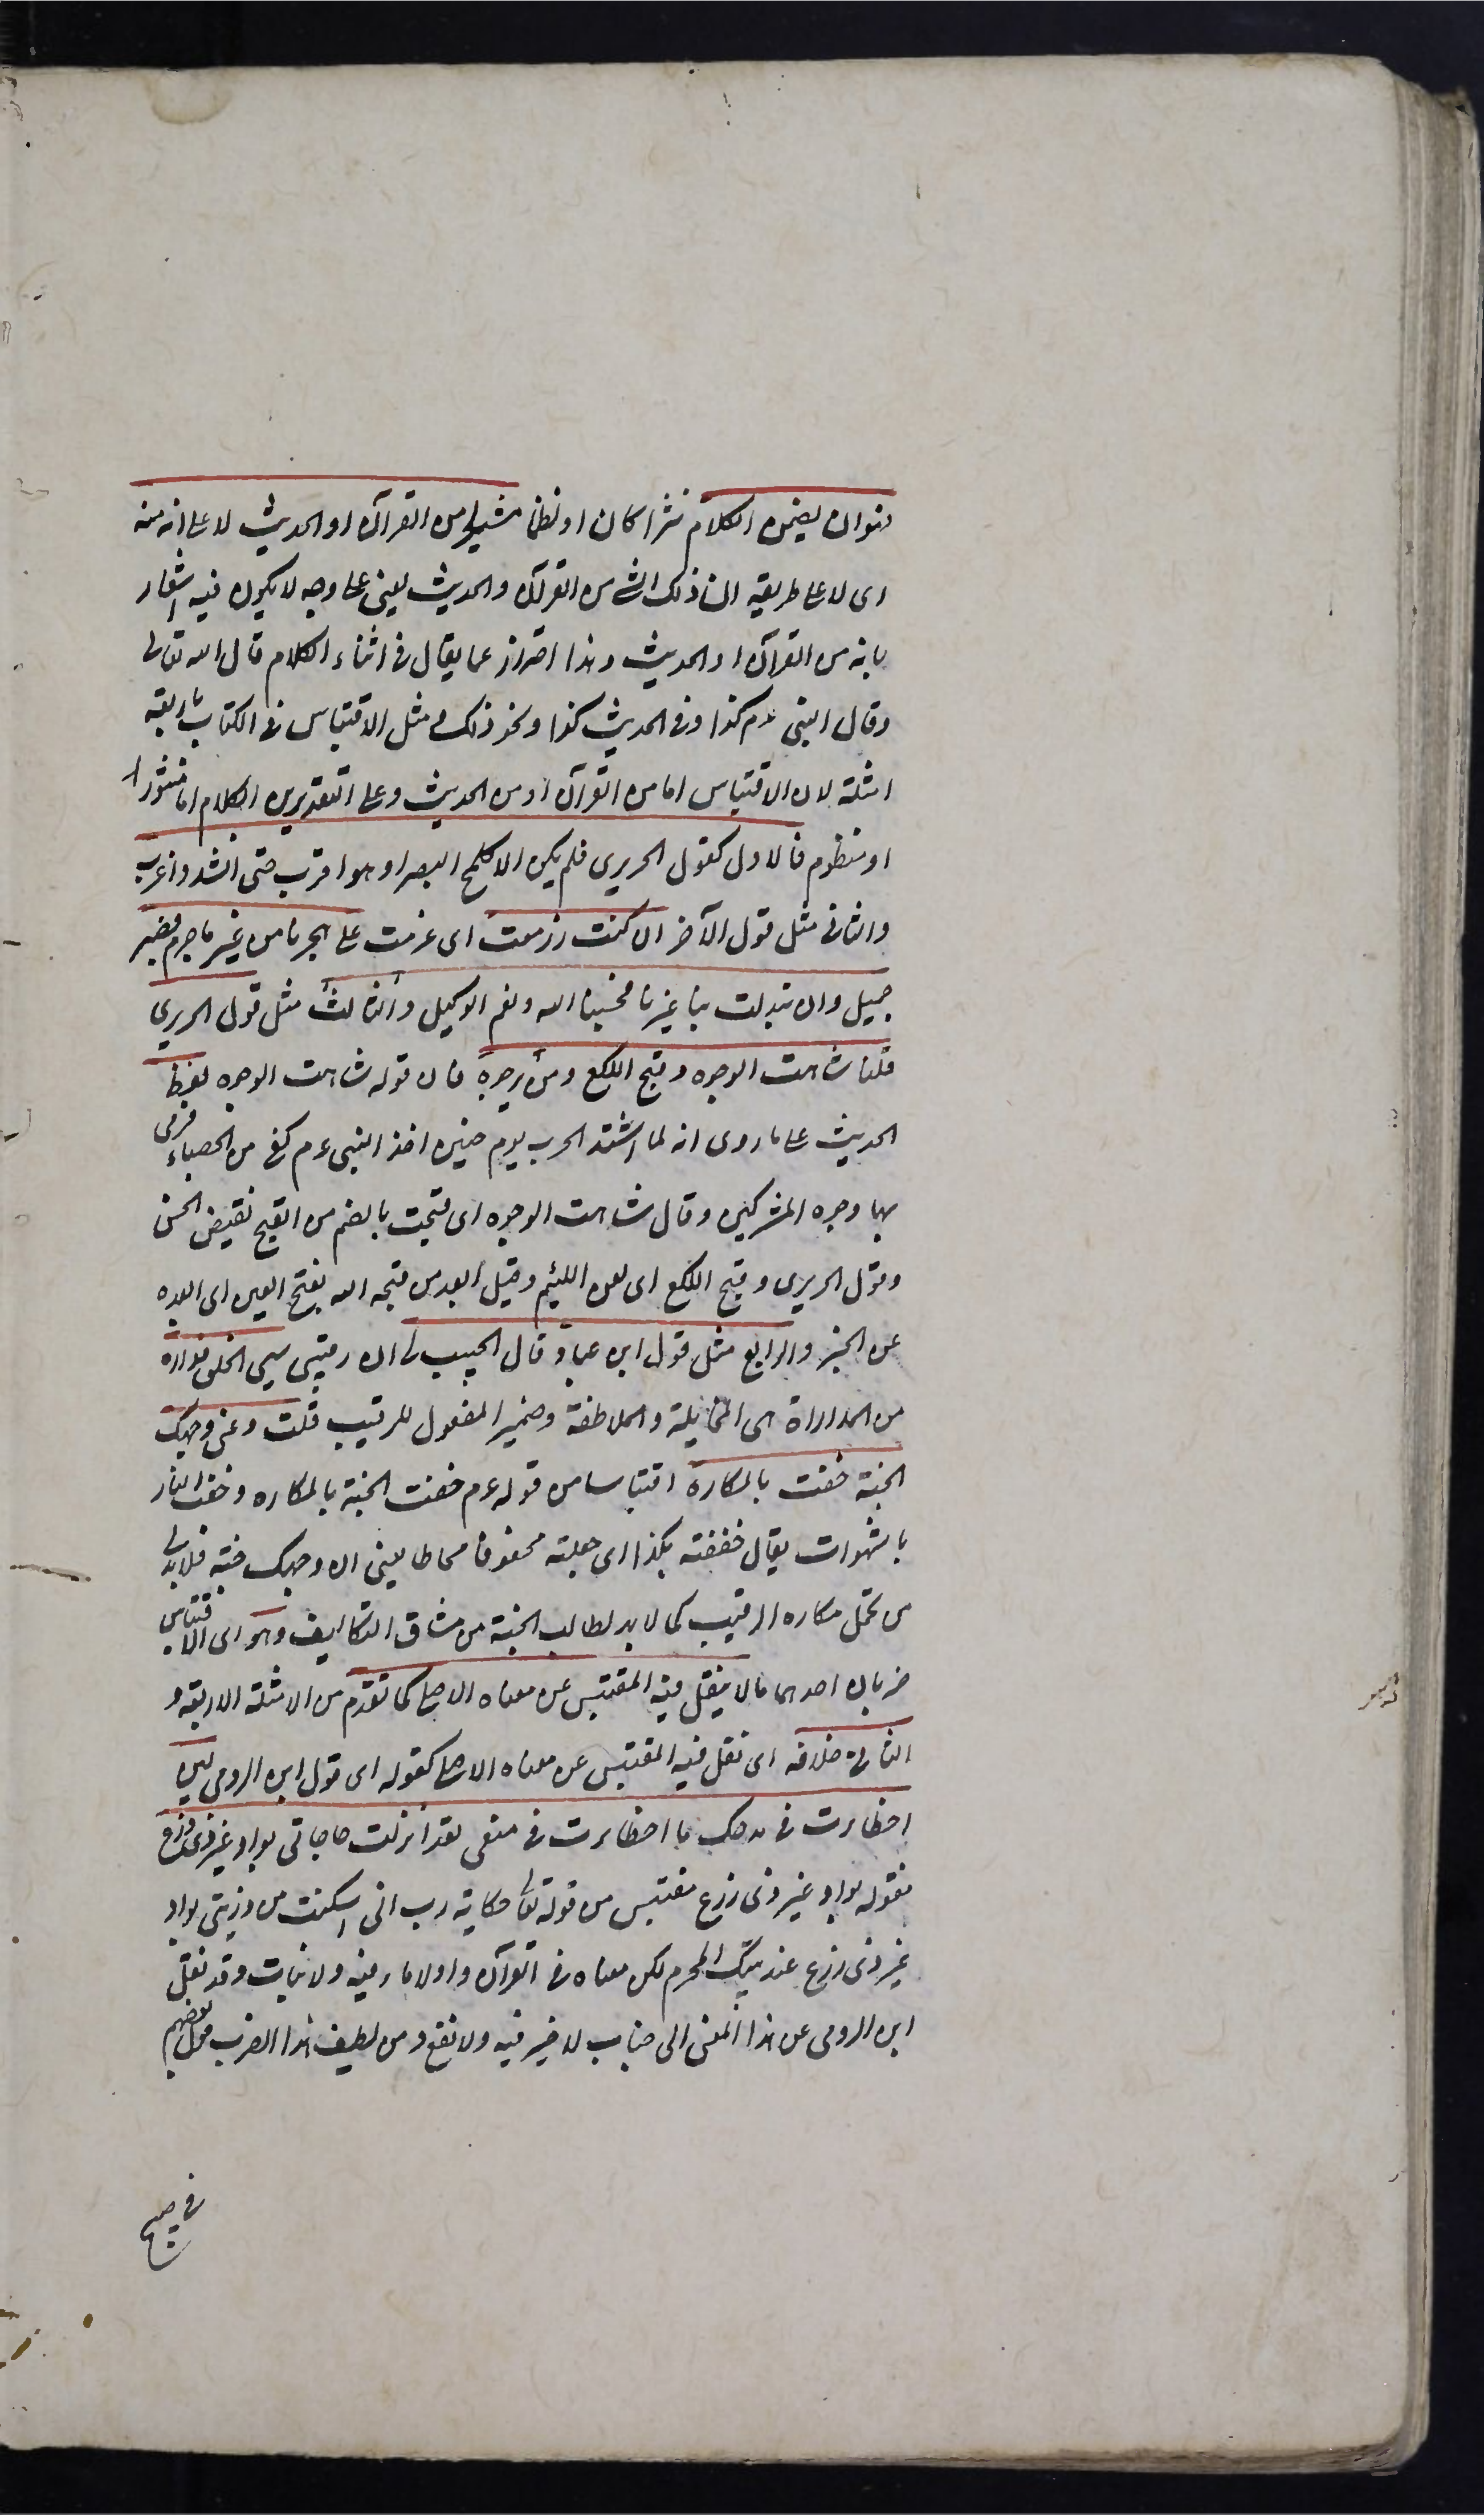 فهو ان يضمن الكلام نثرا كان او نظما شيئا من القرآن او الحديث لا على انه منه
اى لا على طريقة ان ذلك الشئ من القرآن والحديث يعنى على وجه لا يكون فيه اشعار
بانه من القرآن او الحديث وهذا احتراز عما يقال فى اثناء الكلام قال الله تعالى
وقال النبى عم كذا وفى الحديث كذا ونحو ذلك مثل الاقتباس فى الكتاب باربعة
امثلة لان الاقتباس اما من القرآن او من الحديث وعلى التقديرين الكلام اما منثورا
او منظوم فالاول كقول الحريرى فلم يكن الا كلمح البصر او هو اقرب حتى انشد واغرب
والثانى مثل قول الآخر ان كنت ازمعت اى عزمت على هجرنا من غير ما جرم فصبر
جميل وان تبدلت بنا غيرنا فحسبنا الله ونعم الوكيل والثالث مثل قول الحريرى
قلنا شاهت الوجوه وقبح اللكع ومن يرجوه فان قوله شاهت الوجوه لفظ
الحديث على ما روى انه لما اشتد الحرب يوم حنين اخذ النبى عم كفا من الحصباء فرمى
بها وجوه المشركين وقال شاهت الوجوه اى قبحت بالضم من القبح نقيض الحسن
وقول الحريرى وقبح اللكع اى لعن اللئيم وقيل ابعد من قبحه الله بفتح العين اى ابعده
عن الخير والرابع مثل قول ابن عباد قال الحبيب لى ان رقيبى سيى الخلق فداره
من المداراة هى المخايلة والملاطفة وضمير المفعول للرقيب قلت دعنى وجهك
الجنة حفت بالمكاره اقتباسا من قوله عم حفت الجنة بالمكاره وحفت النار
بالشهوات يقال حففته بكذا اى جعلته محفوفا محاطا يعنى ان وجهك جنة فلابد لى
من تحمل مكاره الرقيب كما لابد لطالب الجنة من مشاق التكاليف وهو اى الاقتباس
ضربان احدهما ما لا ينقل فيه المقتبس عن معناه الاصلى كما تقدم من الامثلة الاربعة و
الثانى خلافه اى نقل فيه المقتبس عن معناه الاصلى كقوله اى قول ابن الرومى لئن
اخطأت فى مدحك ما اخطأت فى منعى لقد انزلت حاجاتى بواد غير ذى زرع
فقوله بواد غير ذى زرع مقتبس من قوله تعالى حكاية رب انى اسكنت من ذريتى بواد
غير ذى زرع عند بيتك المحرم لكن معناه فى القرآن واد لا ماء فيه ولا نبات وقد نقل
ابن الرومى عن هذا المعنى الى جناب لا خير فيه ولا نفع ومن لطيف هذا الضرب قول بعضهم
فى صبيح